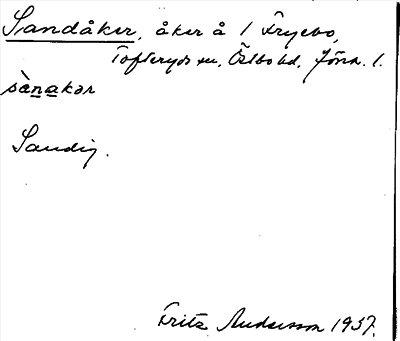 Sandåker, åker å 1 Fryebo,
Tofteryds sn, Östbo hd, Jönk. l.
sànakər
Sandig.
Fritz Andersson 1937.